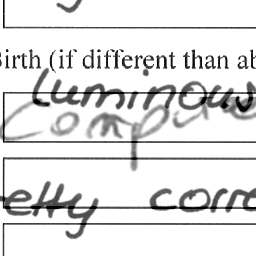 Birth (if different than ab
luminous
Compu
etty corre